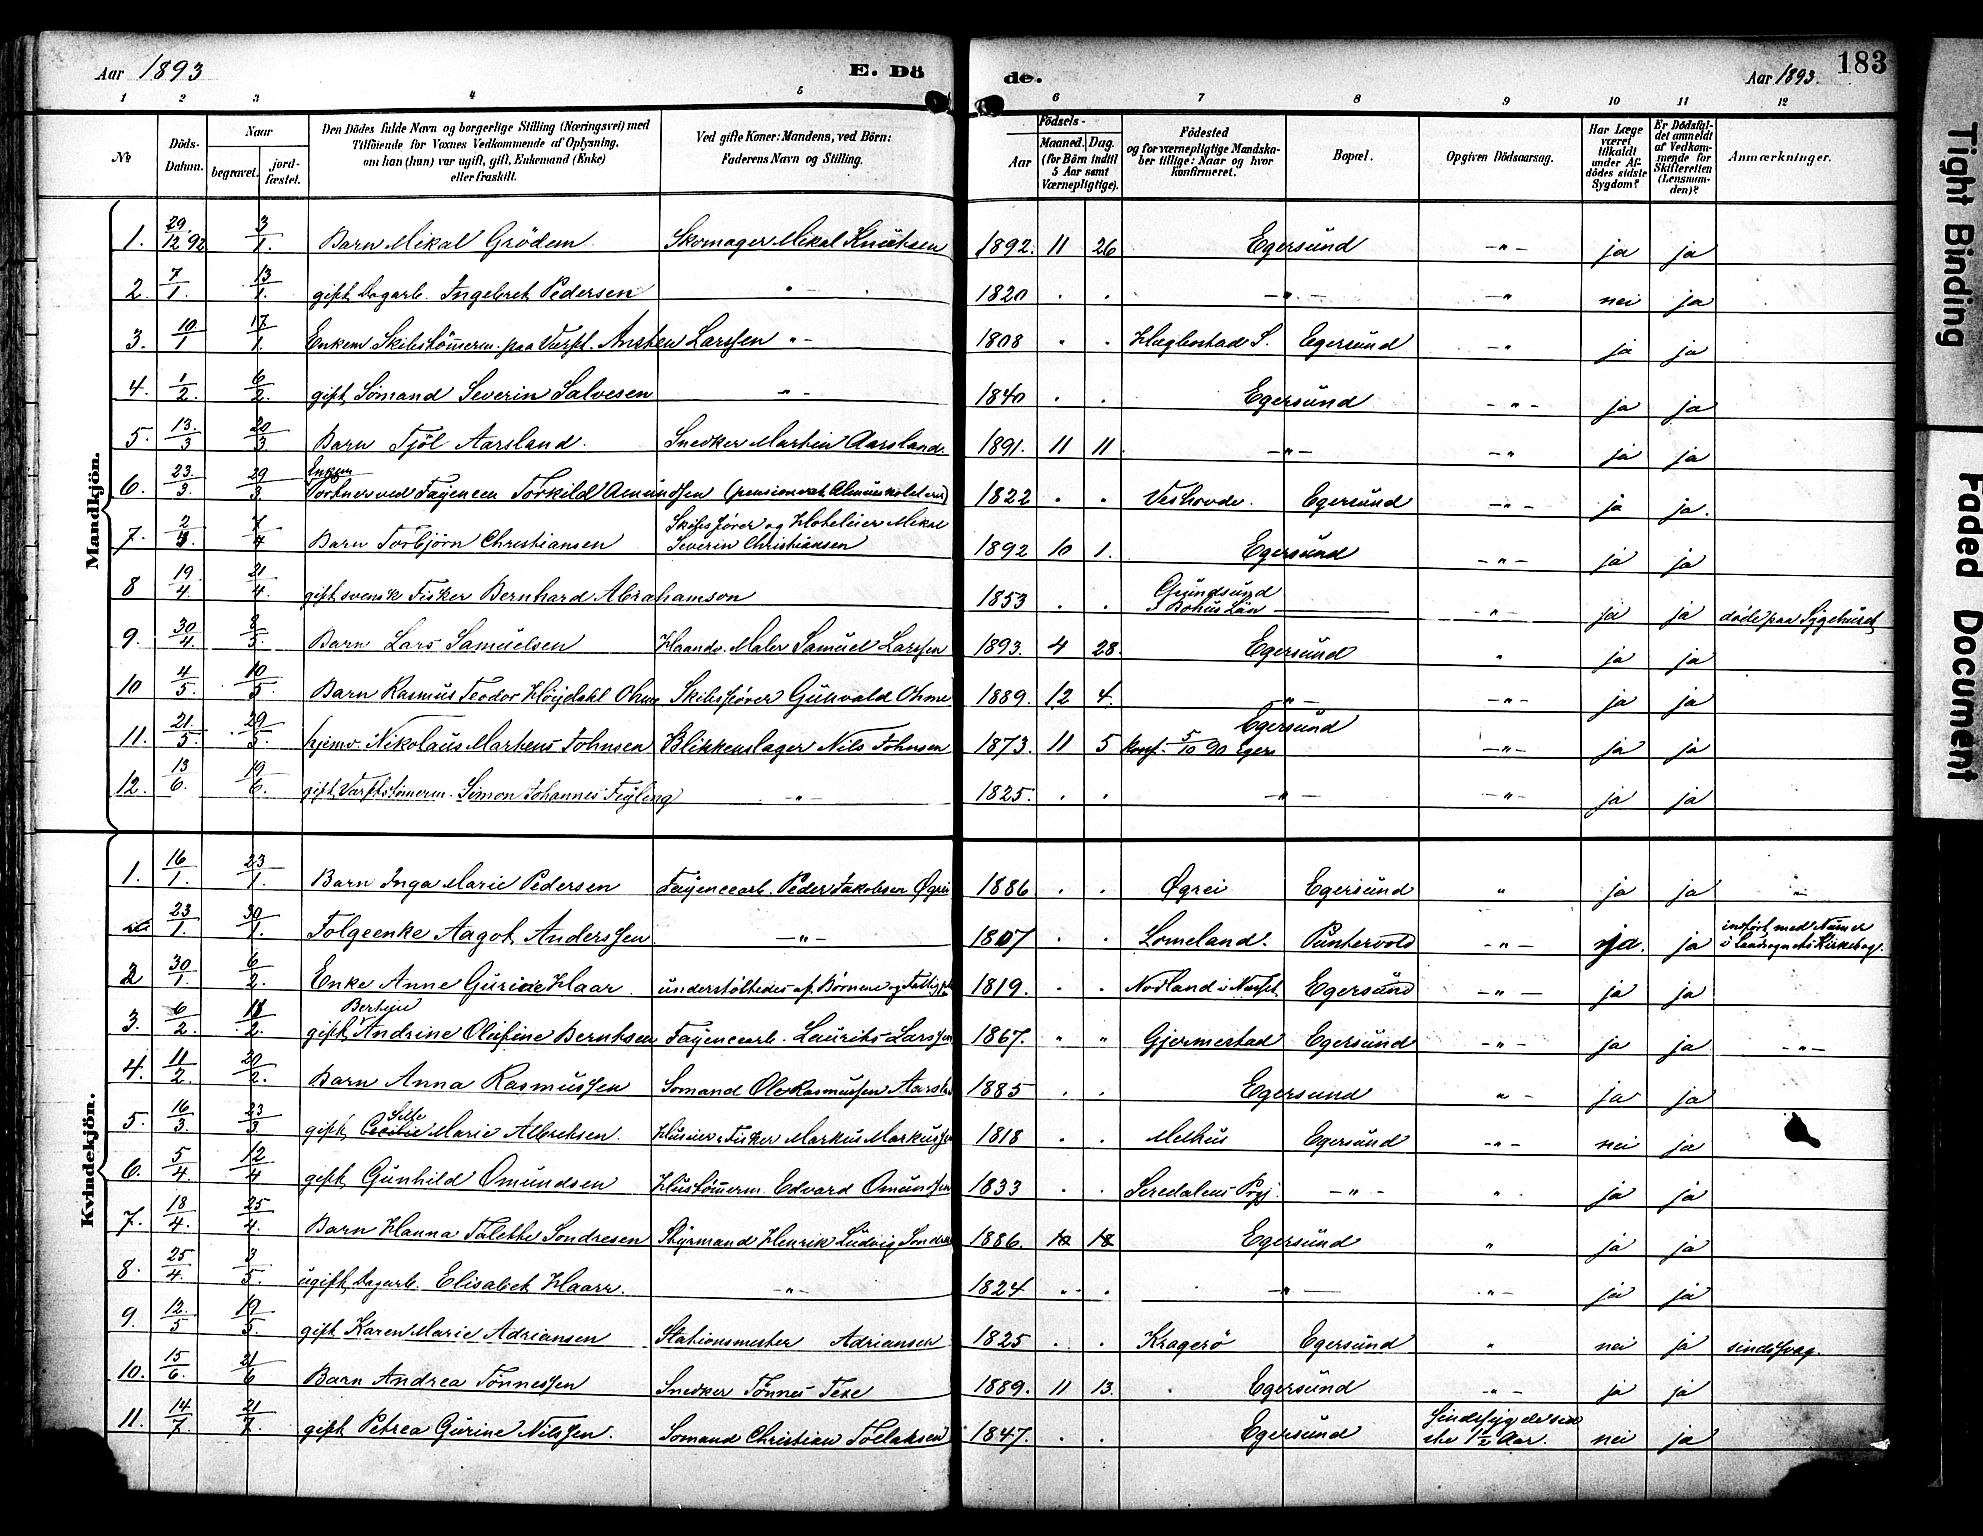 Aar 1893
E. Dö
de.
Aar 1893.
183
1 2 3 4 5 6 7 8 9 10 11 12
No
Döds-Datum.
Naar
begravet.
jordfæstet.
Den Dödes fulde Navn og borgerlige Stilling (Næringsvei) med
Tilföiende for Voxnes Vedkommende af Oplysning,
om han (hun) var ugift, gift, Enkemand (Enke)
eller fraskilt.
Ved gifte Koner: Mandens, ved Börn:
Faderens Navn og Stilling.
Födsels-
Aar
Maaned.
Dag.
(for Børn indtil
5 Aar samt
Værnepligtige).
Födested
og for værnepligtige Mandskaber tillige: Naar og hvor
konfirmeret.
Bopæl.
Opgiven Dödsaarsag.
Har Læge
været
tilkaldt
under Afdödes sidste
Sygdom?
Er Dödsfaldet anmeldt
af Vedkommende for
Skifteretten
(Lensmanden)?
Anmærkninger.
Mandkjön.
1. 29/12 92 3/1. Barn Mikal Grödem. Skomager Mikal Knutsen 1892. 11 26 Egersund -"- ja ja
2. 7/1 13/1. gift Dagarb. Ingebret Pedersen " 1820 . . -"- -"- nei ja
3. 10/1 17/1. Enkem Skibstömerm. paa Larssen "- 1808 " . Hægbostad S. Egersund -"- ja ja
4. 1/2 6/2. gift Sömand Severin Salvesen -"- 1840 . . Egersund -"- ja ja
5. 13/3 20/3. Barn Tjöl Aarsland. Snedker Martin Aarsland. 1891. 11 11. -"- -"- ja ja
6. 23/3. 29/3 Enkem Portner ved Fayencen Torkild Amundssen 1822 . . Egersund -"- ja ja.
7. 7/4 Barn Torbjörn Christiansen Skibsfører og Hotelier Mikal
Severin Christiansen 1892 10 1. Egersund -"- ja ja
8 19/4. 21/4. gift svensk Fisker Bernhard Abrahamson 1853 . . Grundsund
i Bohus Län " ja ja döde paa Sygehuset
9. 30/4 8/5. Barn Lars Samuelsen Haandv. Maler Samuel Larssen 1893. 4 28. Egersund " ja ja
10 4/5. 10/5. Barn Rasmus Teodor Höydahl Ohme Skibsfører Gunvald Ohme 1889. 12 4. -"- -"- ja ja
11. 21/5. 29/5. hjemv. Nikolaus Martens Johnsen Blikkenslager Nils Johnsen 1873. 11 5 Egersund
konf. 5/10 90 Egers -"- ja ja
12. 13/6. 19/6. gift Simon Johannes Fugling -"- 1825. . . -"- -"- ja ja
Kvindekjön.
1. 16/1. 23/1. Barn Inga Marie Pedersen Fayencearb. Peder Jakobsen Øgrei 1886 . . Øgrei Egersund " ja ja "
23/1. 30/1. Folgeenke Aagot Anderssen -"- 1807 . . Lomeland. Puntervold -"- ja. ja indført med Numer
i Landsognets Kirkebog.
2 30/1 6/2. Enke Anne Gurine Haar. understöttedes af Börnene og 1819. . . Egersund -"- ja ja
3. 6/2. 18/2. gift Bertine Andrine Olufine Berntsen Fayencearb. Laurits Larssen 1867. " " Gjermestad Egersund -"- ja ja -"-
4. 11/2 20/2. Barn Anna Rasmussen Somand Ole Rasmussen 1885 . . Egersund "- ja ja
5. 16/3 23/3. gift Marie Albrektsen. Husier, Fisker Markus 1818 . . Melhus Egersund -"- nei ja
6. 5/4 12/4 gift Gunhild Omundsen Edvard Omundsen 1833 . . -"- " ja ja
7. 18/4. 25/4. Barn Hanna Talette Sondresen Styrmand Henrik Ludvig 1886. 12 18 Egersund " ja ja
8. 25/4. 3/5. ugift Dagarb. Elisabet Haarr. -"- 1824 . . -"- -"- ja ja
9. 12/5 19/5. gift Karen Marie Adriansen Stationsmester Adriansen 1825 . . Kragerö Egersund " nei ja sindssvag.
10. 15/6. 21/6 Barn Andrea Tönnessen Snedker Tönnes 1889. 11 13. Egersund -"- ja ja
11. 14/7. 21/7. gift Petrea Gurine Nilssen. Somand Christian Tollaksen 1847. . . Egersund 1½ Aar. nei ja
Tight Binding
Faded Document